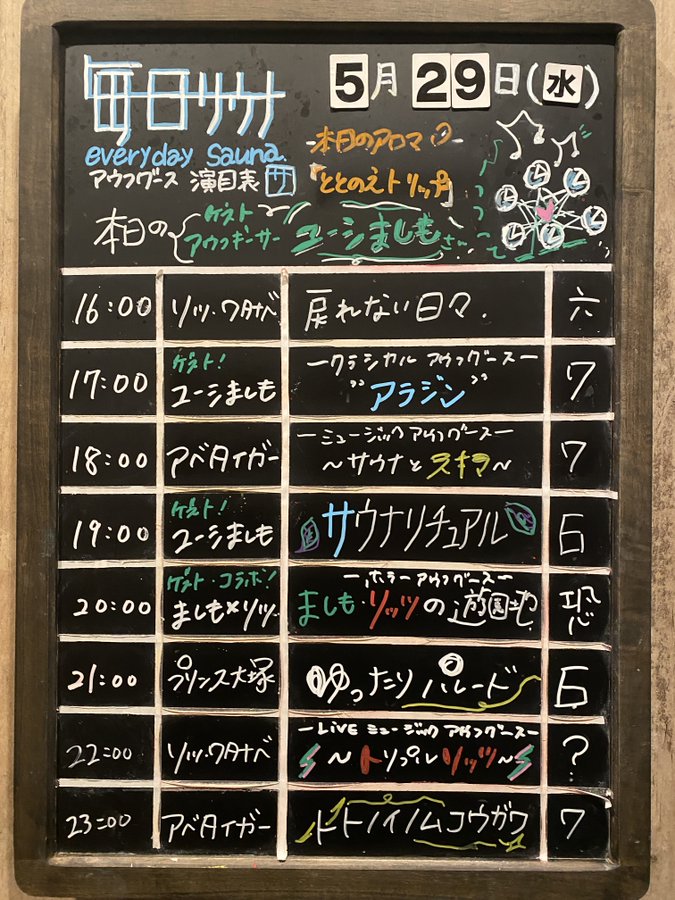 毎日サウナ
5月29日(水)
everyday Sauna.
アウフグース 演目表 サ
本日のアロマ
「ととのえトリップ」
本日の ゲスト アウフギーサー ユーシましもさん
16:00 リッツ・ワタナベ 戻れない日々. 六
17:00 ゲスト! ユーシましも ークラシカル アウフグースー "アラジン" 7
18:00 アベタイガー ーミュージック アウフグースー 〜サウナとスキマ〜 7
19:00 ゲスト! ユーシましも サウナリチュアル 6
20:00 ゲスト・コラボ! ましも×リッツ ーホラー アウフグースー ましも・リッツの遊園地 恐
21:00 プリンス大塚 ゆったりパレード 6
22:00 リッツ・ワタナベ ーLiVE ミュージック アウフグースー 〜トリプルリッツ〜 ?
23:00 アベタイガー トトノイノムコウガワ 7